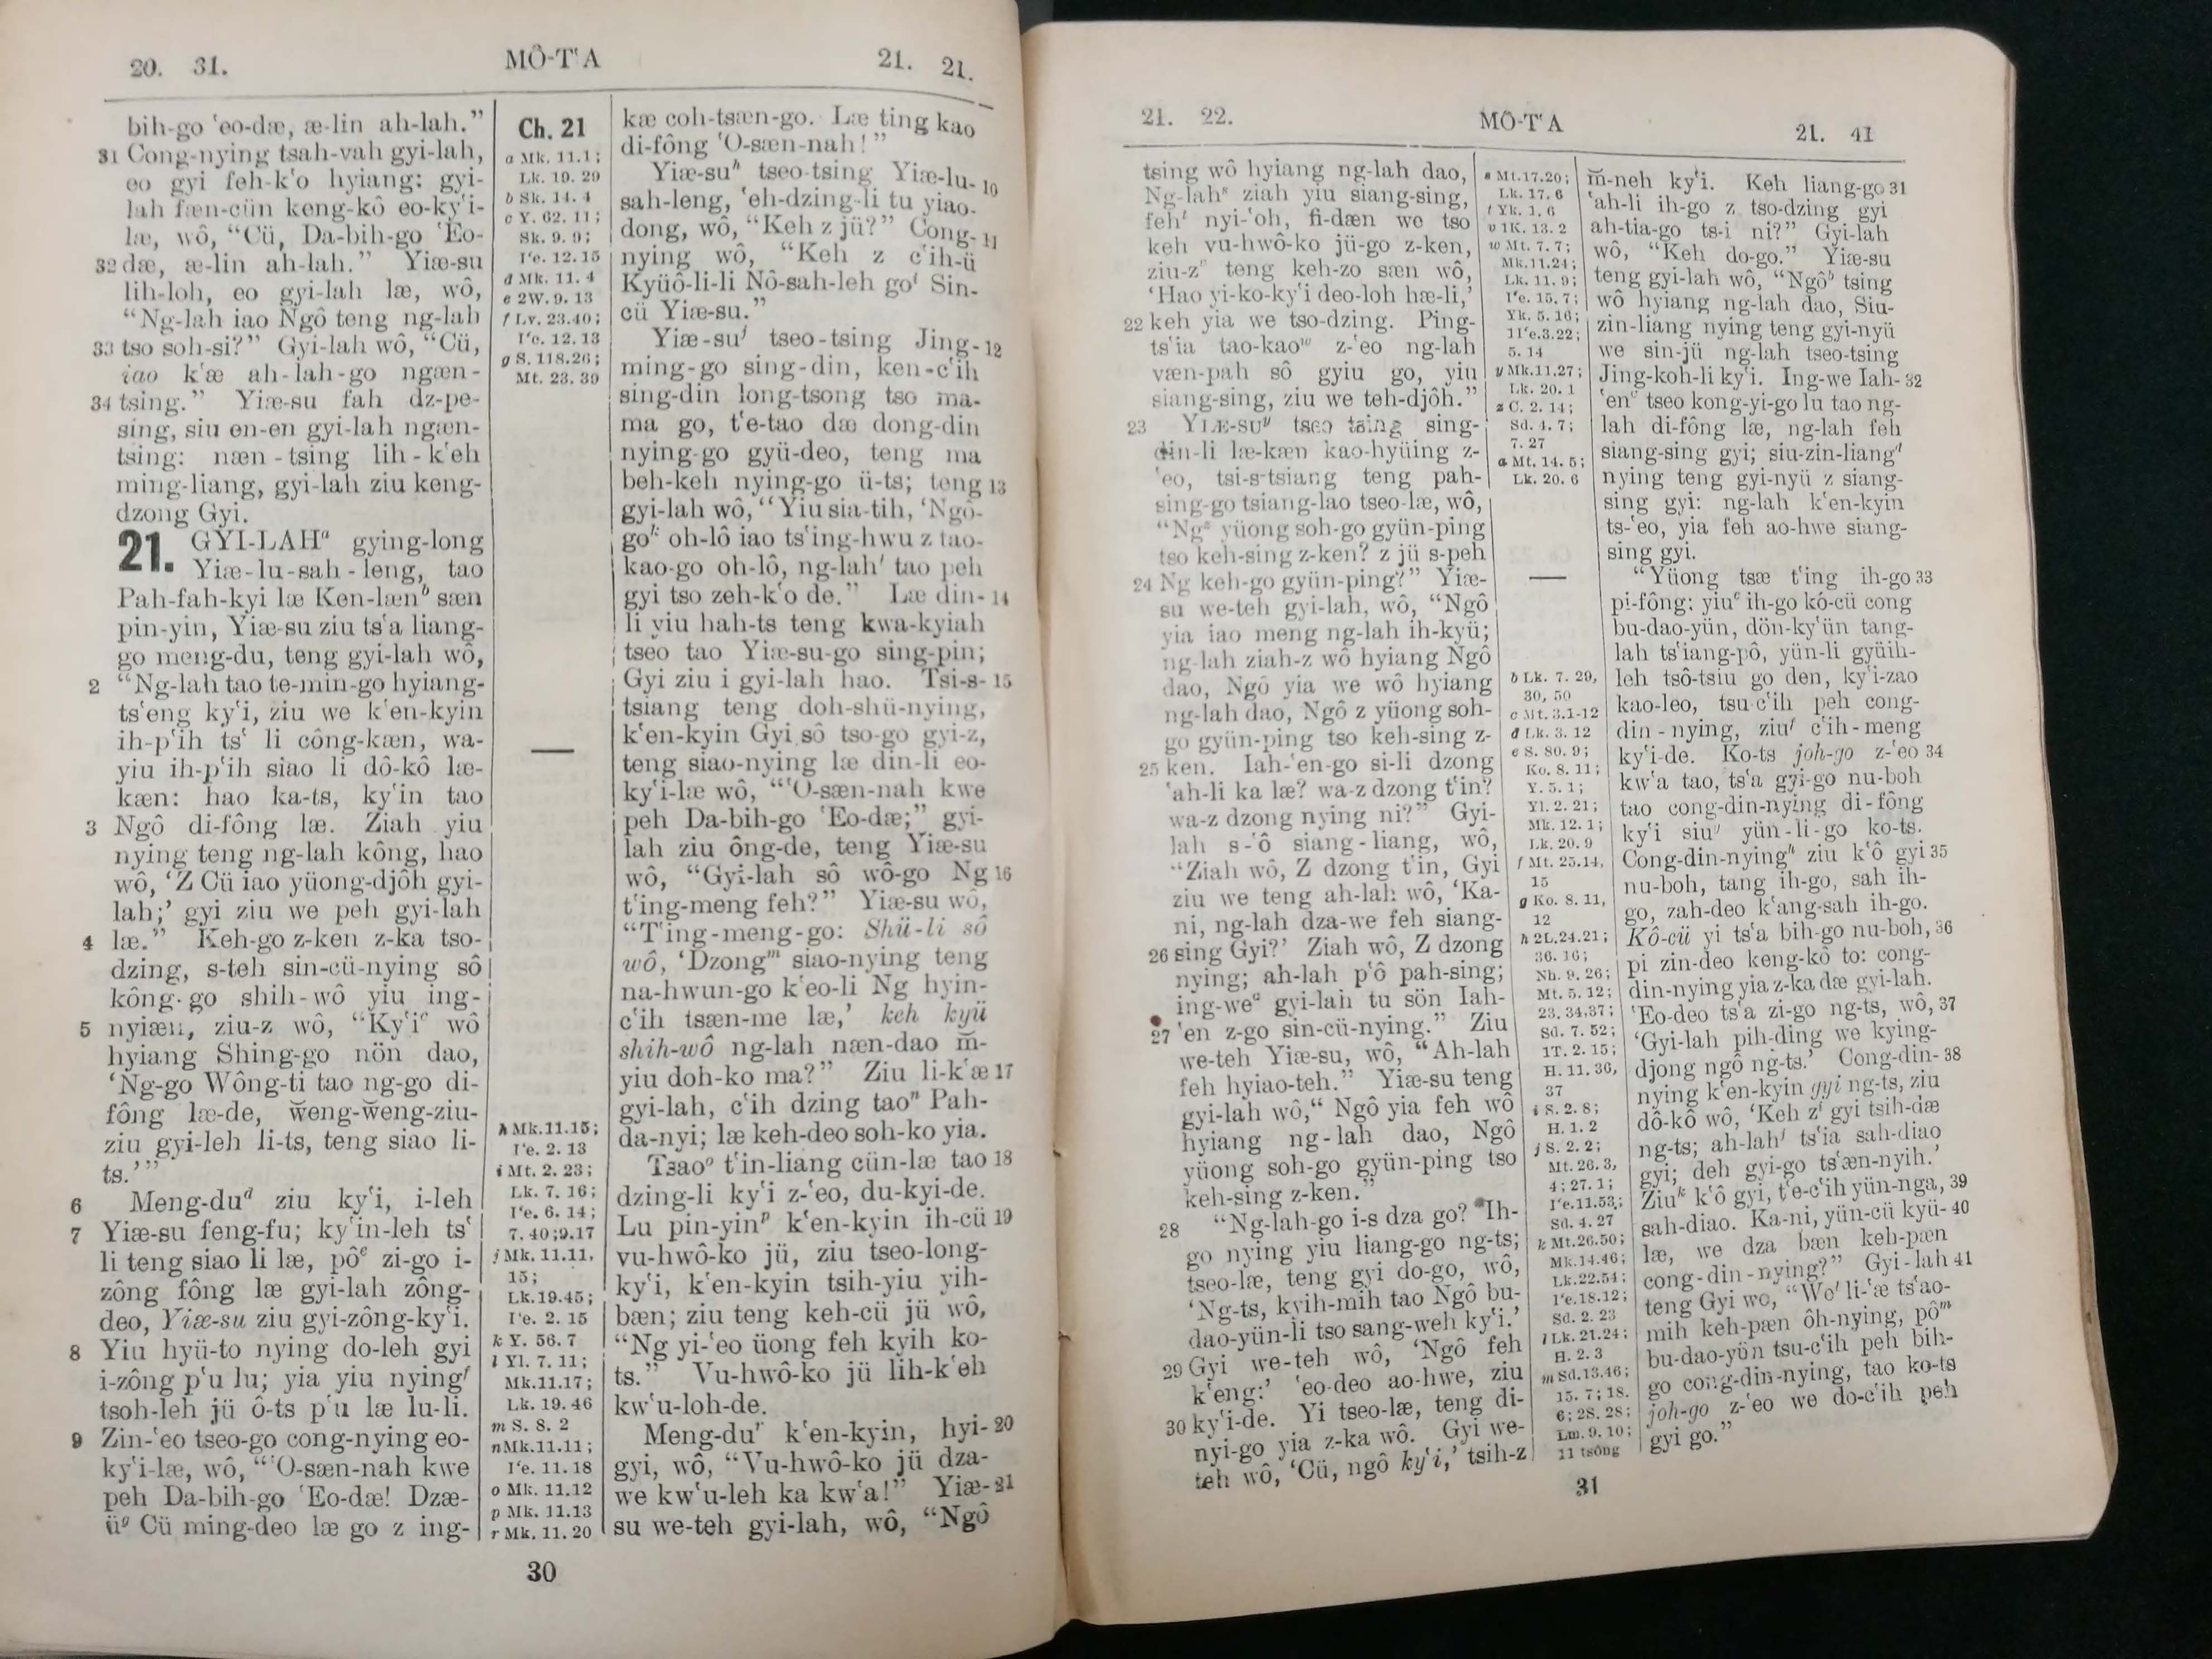 20. 31.
MÔ-TʻA
21. 21.
bih-go ʻeo-dæ, æ-lin ah-lah.”
31 Cong-nying tsah-vah gyi-lah,
eo gyi feh-kʻo hyiang: gyi-
lah fæn-cün keng-kô eo-kyʻi-
læ, wô, “Cü, Da-bih-go ʻEo-
32 dæ, æ-lin ah-lah.” Yiæ-su
lih-loh, eo gyi-lah læ, wô,
“Ng-lah iao Ngô teng ng-lah
33 tso soh-si?” Gyi-lah wô, “Cü,
iao kʻæ ah-lah-go ngæn-
34 tsing.” Yiæ-su fah dz-pe-
sing, siu en-en gyi-lah ngæn-
tsing: næn-tsing lih-kʻeh
ming-liang, gyi-lah ziu keng-
dzong Gyi.
21. GYI-LAHᵃ gying-long
Yiæ-lu-sah-leng, tao
Pah-fah-kyi læ Ken-lænᵇ sæn
pin-yin, Yiæ-su ziu tsʻa liang-
go meng-du, teng gyi-lah wô,
2 “Ng-lah tao te-min-go hyiang-
tsʻeng kyʻi, ziu we kʻen-kyin
ih-pʻih tsʻ li công-kæn, wa-
yiu ih-pʻih siao li dô-kô læ-
kæn: hao ka-ts, kyʻin tao
3 Ngô di-fông læ. Ziah yiu
nying teng ng-lah kông, hao
wô, ‘Z Cü iao yüong-djôh gyi-
lah;’ gyi ziu we peh gyi-lah
4 læ.” Keh-go z-ken z-ka tso-
dzing, s-teh sin-cü-nying sô
kông-go shih-wô yiu ing-
5 nyiæn, ziu-z wô, “Kyʻiᶜ wô
hyiang Shing-go nön dao,
‘Ng-go Wông-ti tao ng-go di-
fông læ-de, w̆eng-w̆eng-ziu-
ziu gyi-leh li-ts, teng siao li-
ts.’”
6 Meng-duᵈ ziu kyʻi, i-leh
7 Yiæ-su feng-fu; kyʻin-leh tsʻ
li teng siao li læ, pôᵉ zi-go i-
zông fông læ gyi-lah zông-
deo, Yiæ-su ziu gyi-zông-kyʻi.
8 Yiu hyü-to nying do-leh gyi
i-zông pʻu lu; yia yiu nyingᶠ
tsoh-leh jü ô-ts pʻu læ lu-li.
9 Zin-ʻeo tseo-go cong-nying eo-
kyʻi-læ, wô, “ʻO-sæn-nah kwe
peh Da-bih-go ʻEo-dæ! Dzæ-
üᵍ Cü ming-deo læ go z ing-
Ch. 21
a Mk. 11.1;
Lk. 19. 29
b Sk. 14. 4
c Y. 62. 11;
Sk. 9. 9;
Iʻe. 12. 15
d Mk. 11. 4
e 2W. 9. 13
f Lv. 23.40;
Iʻe. 12. 13
g S. 118.26;
Mt. 23. 39
h Mk.11.15;
Iʻe. 2. 13
i Mt. 2. 23;
Lk. 7. 16;
Iʻe. 6. 14;
7. 40;9.17
j Mk. 11.11,
15;
Lk.19.45;
Iʻe. 2. 15
k Y. 56. 7
l Yl. 7. 11;
Mk.11.17;
Lk. 19. 46
m S. 8. 2
n Mk.11.11;
Iʻe. 11. 18
o Mk. 11.12
p Mk. 11.13
r Mk. 11. 20
kæ coh-tsæn-go. Læ ting kao
di-fông ʻO-sæn-nah!”
Yiæ-suʰ tseo-tsing Yiæ-lu- 10
sah-leng, ʻeh-dzing-li tu yiao-
dong, wô, “Keh z jü?” Cong- 11
nying wô, “Keh z cʻih-ü
Kyüô-li-li Nô-sah-leh goⁱ Sin-
cü Yiæ-su.”
Yiæ-suʲ tseo-tsing Jing- 12
ming-go sing-din, ken-cʻih
sing-din long-tsong tso ma-
ma go, tʻe-tao dæ dong-din
nying-go gyü-deo, teng ma
beh-keh nying-go ü-ts; teng 13
gyi-lah wô, “Yiu sia-tih, ‘Ngô-
goᵏ oh-lô iao tsʻing-hwu z tao-
kao-go oh-lô, ng-lahˡ tao peh
gyi tso zeh-kʻo de.” Læ din- 14
li yiu hah-ts teng kwa-kyiah
tseo tao Yiæ-su-go sing-pin;
Gyi ziu i gyi-lah hao. Tsi-s- 15
tsiang teng doh-shü-nying,
kʻen-kyin Gyi sô tso-go gyi-z,
teng siao-nying læ din-li eo-
kyʻi-læ wô, “ʻO-sæn-nah kwe
peh Da-bih-go ʻEo-dæ;” gyi-
lah ziu ông-de, teng Yiæ-su
wô, “Gyi-lah sô wô-go Ng 16
tʻing-meng feh?” Yiæ-su wô,
“Tʻing-meng-go: Shü-li sô
wô, ‘Dzongᵐ siao-nying teng
na-hwun-go kʻeo-li Ng hyin-
cʻih tsæn-me læ,’ keh kyü
shih-wô ng-lah næn-dao m̆-
yiu doh-ko ma?” Ziu li-kʻæ 17
gyi-lah, cʻih dzing taoⁿ Pah-
da-nyi; læ keh-deo soh-ko yia.
Tsaoᵒ tʻin-liang cün-læ tao 18
dzing-li kyʻi z-ʻeo, du-kyi-de.
Lu pin-yinᵖ kʻen-kyin ih-cü 19
vu-hwô-ko jü, ziu tseo-long-
kyʻi, kʻen-kyin tsih-yiu yih-
bæn; ziu teng keh-cü jü wô,
“Ng yi-ʻeo üong feh kyih ko-
ts.” Vu-hwô-ko jü lih-kʻeh
kwʻu-loh-de.
Meng-duʳ kʻen-kyin, hyi- 20
gyi, wô, “Vu-hwô-ko jü dza-
we kwʻu-leh ka kwʻa!” Yiæ- 21
su we-teh gyi-lah, wô, “Ngô
30
21. 22.
MÔ-TʻA
21. 41
tsing wô hyiang ng-lah dao,
Ng-lahˢ ziah yiu siang-sing,
fehᵗ nyi-ʻoh, fi-dæn we tso
keh vu-hwô-ko jü-go z-ken,
ziu-zᵛ teng keh-zo sæn wô,
‘Hao yi-ko-kyʻi deo-loh hæ-li,’
22 keh yia we tso-dzing. Ping-
tsʻia tao-kaoʷ z-ʻeo ng-lah
væn-pah sô gyiu go, yiu
siang-sing, ziu we teh-djôh.”
23 YIÆ-SUʸ tseo tsing sing-
din-li læ-kæn kao-hyüing z-
ʻeo, tsi-s-tsiang teng pah-
sing-go tsiang-lao tseo-læ, wô,
“Ngᶻ yüong soh-go gyün-ping
tso keh-sing z-ken? z jü s-peh
24 Ng keh-go gyün-ping?” Yiæ-
su we-teh gyi-lah, wô, “Ngô
yia iao meng ng-lah ih-kyü;
ng-lah ziah-z wô hyiang Ngô
dao, Ngô yia we wô hyiang
ng-lah dao, Ngô z yüong soh-
go gyün-ping tso keh-sing z-
25 ken. Iah-ʻen-go si-li dzong
ʻah-li ka læ? wa-z dzong tʻin?
wa-z dzong nying ni?” Gyi-
lah s-ʻô siang-liang, wô,
“Ziah wô, Z dzong tʻin, Gyi
ziu we teng ah-lah wô, ‘Ka-
ni, ng-lah dza-we feh siang-
26 sing Gyi?’ Ziah wô, Z dzong
nying; ah-lah pʻô pah-sing;
ing-weᵃ gyi-lah tu sön Iah-
27 ʻen z-go sin-cü-nying.” Ziu
we-teh Yiæ-su, wô, “Ah-lah
feh hyiao-teh.” Yiæ-su teng
gyi-lah wô, “Ngô yia feh wô
hyiang ng-lah dao, Ngô
yüong soh-go gyün-ping tso
keh-sing z-ken.”
28 “Ng-lah-go i-s dza go? Ih-
go nying yiu liang-go ng-ts;
tseo-læ, teng gyi do-go, wô,
‘Ng-ts, kyih-mih tao Ngô bu-
dao-yün-li tso sang-weh kyʻi.’
29 Gyi we-teh wô, ‘Ngô feh
kʻeng:’ ʻeo-deo ao-hwe, ziu
30 kyʻi-de. Yi tseo-læ, teng di-
nyi-go yia z-ka wô. Gyi we-
teh wô, ‘Cü, ngô kyʻi,’ tsih-z
s Mt.17.20;
Lk. 17. 6
t Yk. 1. 6
v 1K. 13. 2
w Mt. 7. 7;
Mk.11.24;
Lk. 11. 9;
Iʻe. 15. 7;
Yk. 5. 16;
1Iʻe.3.22;
5. 14
y Mk.11.27;
Lk. 20. 1
z C. 2. 14;
Sd. 4. 7;
7. 27
a Mt. 14. 5;
Lk. 20. 6
b Lk. 7. 29,
30, 50
c Mt. 3.1-12
d Lk. 3. 12
e S. 80. 9;
Ko. 8. 11;
Y. 5. 1;
Yl. 2. 21;
Mk. 12. 1;
Lk. 20. 9
f Mt. 25.14,
15
g Ko. 8. 11,
12
h 2L.24.21;
36. 16;
Nh. 9. 26;
Mt. 5. 12;
23. 34,37;
Sd. 7. 52;
1T. 2. 15;
H. 11. 36,
37
i S. 2. 8;
H. 1. 2
j S. 2. 2;
Mt. 26. 3,
4; 27. 1;
Iʻe.11.53;
Sd. 4. 27
k Mt.26.50;
Mk.14.46;
Lk.22.54;
Iʻe.18.12;
Sd. 2. 23
l Lk. 21.24;
H. 2. 3
m Sd.13.46;
15. 7; 18.
6; 28. 28;
Lm. 9. 10;
11 tsông
m̆-neh kyʻi. Keh liang-go 31
ʻah-li ih-go z tso-dzing gyi
ah-tia-go ts-i ni?” Gyi-lah
wô, “Keh do-go.” Yiæ-su
teng gyi-lah wô, “Ngôᵇ tsing
wô hyiang ng-lah dao, Siu-
zin-liang nying teng gyi-nyü
we sin-jü ng-lah tseo-tsing
Jing-koh-li kyʻi. Ing-we Iah- 32
ʻenᶜ tseo kong-yi-go lu tao ng-
lah di-fông læ, ng-lah feh
siang-sing gyi; siu-zin-liangᵈ
nying teng gyi-nyü z siang-
sing gyi: ng-lah kʻen-kyin
ts-ʻeo, yia feh ao-hwe siang-
sing gyi.
“Yüong tsæ tʻing ih-go 33
pi-fông: yiuᵉ ih-go kô-cü cong
bu-dao-yün, dön-kyʻün tang-
lah tsʻiang-pô, yün-li gyüih-
leh tsô-tsiu go den, kyʻi-zao
kao-leo, tsu-cʻih peh cong-
din-nying, ziuᶠ cʻih-meng
kyʻi-de. Ko-ts joh-go z-ʻeo 34
kwʻa tao, tsʻa gyi-go nu-boh
tao cong-din-nying di-fông
kyʻi siuᵍ yün-li-go ko-ts.
Cong-din-nyingʰ ziu kʻô gyi 35
nu-boh, tang ih-go, sah ih-
go, zah-deo kʻang-sah ih-go.
Kô-cü yi tsʻa bih-go nu-boh, 36
pi zin-deo keng-kô to: cong-
din-nying yia z-ka dæ gyi-lah.
ʻEo-deo tsʻa zi-go ng-ts, wô, 37
‘Gyi-lah pih-ding we kying-
djong ngô ng-ts.’ Cong-din- 38
nying kʻen-kyin gyi ng-ts, ziu
dô-kô wô, ‘Keh zⁱ gyi tsih-dæ
ng-ts; ah-lahʲ tsʻia sah-diao
gyi; deh gyi-go tsʻæn-nyih.’
Ziuᵏ kʻô gyi, tʻe-cʻih yün-nga, 39
sah-diao. Ka-ni, yün-cü kyü- 40
læ, we dza bæn keh-pæn
cong-din-nying?” Gyi-lah 41
teng Gyi wô, “Weˡ li-ʻæ tsʻao-
mih keh-pæn ôh-nying, pôᵐ
bu-dao-yün tsu-cʻih peh bih-
go cong-din-nying, tao ko-ts
joh-go z-ʻeo we do-cʻih peh
gyi go.”
31